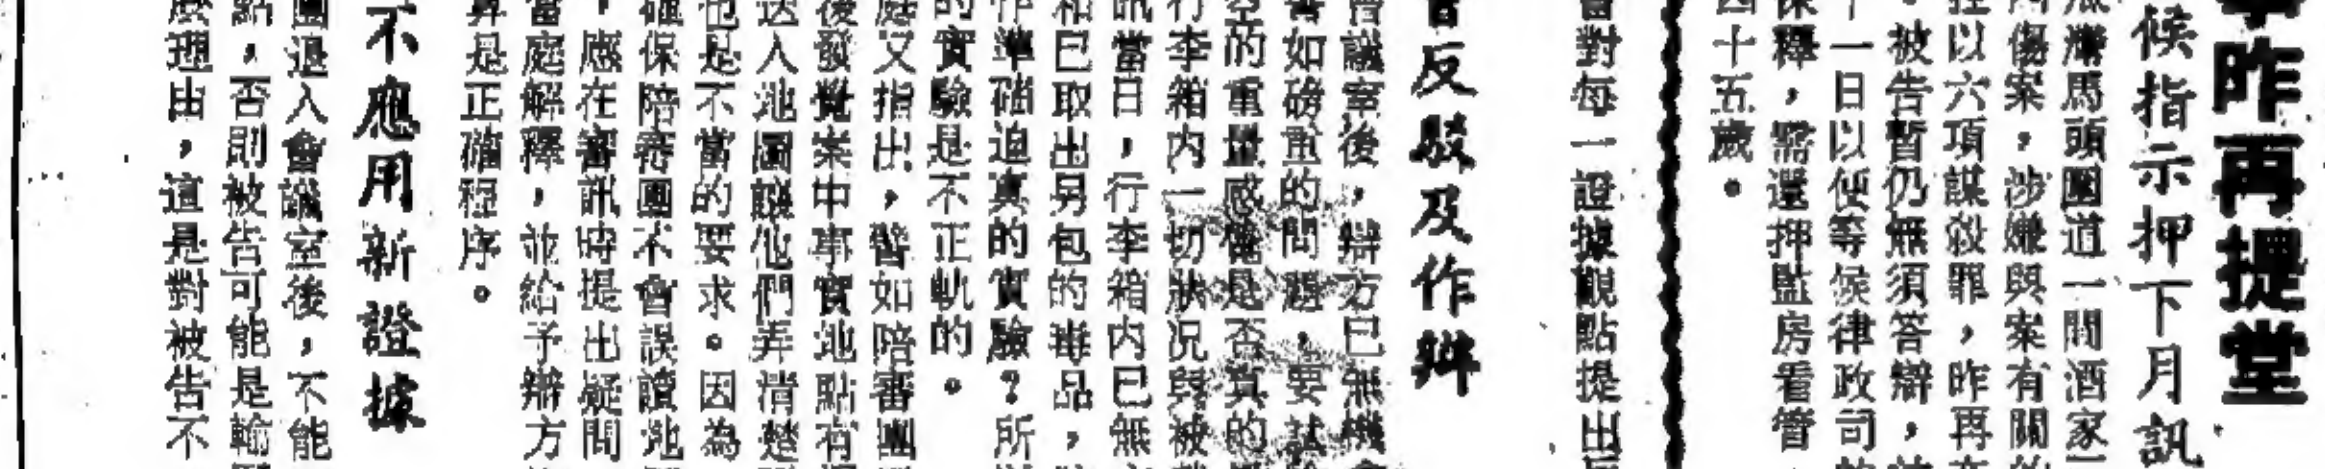 昨再提堂
候指示押下月訊
馬頭圍道一間酒家
傷案，涉嫌與案有關
以六項謀殺罪，昨再
。被告暫仍無須答辯，
十一日以便等候律政司
保釋，需還押監房看管
四十五歲。
對每一證據觀點提出
反駁及作辯
會議室後，辯方已無機
如磅重的問題，要試
空的重量感覺是否真的
行李箱內一切狀況與被
訊當日，行李箱內已無
和已取出另包的毒品，
作準確迫真的實驗？所
的實驗是不正軌的。
庭又指出，譬如陪審團
後發覺案中事實地點有
送入地圖讓他們弄清楚
也是不當的要求。因為
確保陪審團不會誤讀地
，應在審訊時提出疑問
當庭解釋，並給予辯方
算是正確程序。
不應用新證據
團退入會議室後，不能
點，否則被告可能是輸
麼理由，這是對被告不